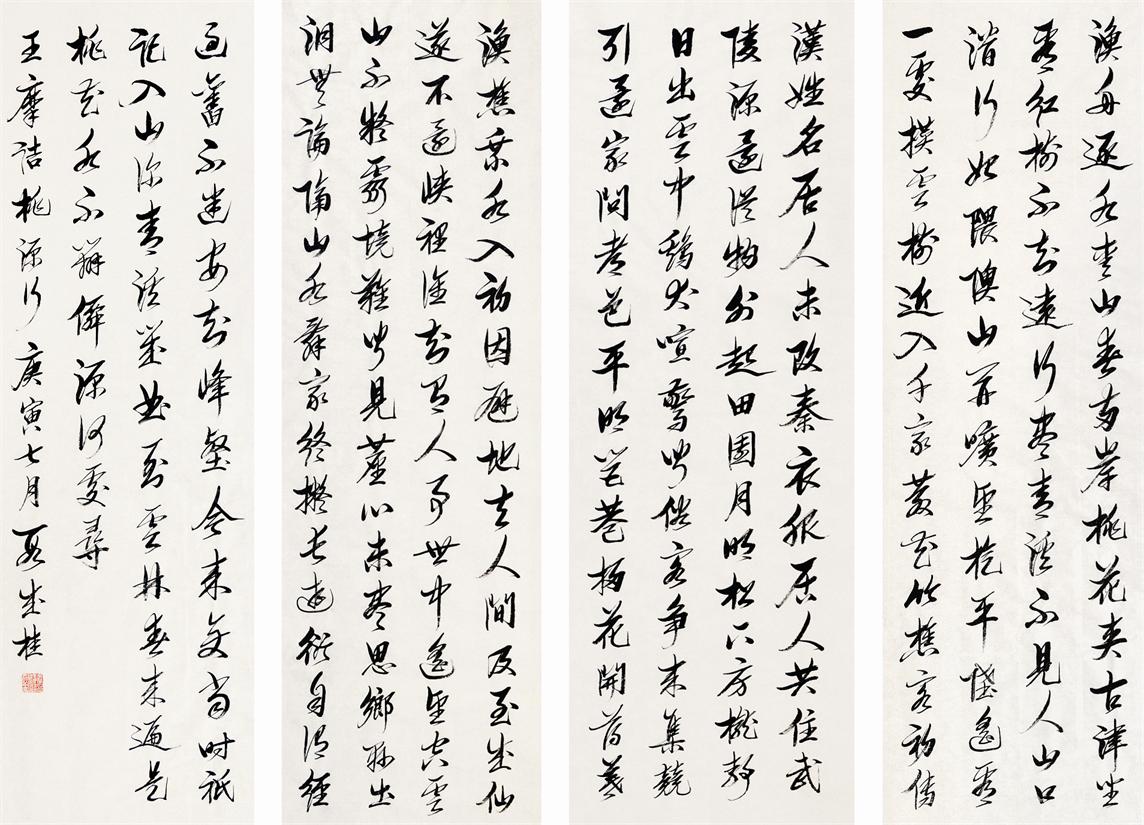 漁舟逐水愛山春兩岸桃花夾古津坐
看紅樹不知遠行盡青溪不見人山口
潛行始隈隩山開曠望旋平陸遙看
一處攢雲樹近入千家散花竹樵客初傳
漢姓名居人未改秦衣服居人共住武
陵源還從物外起田園月明松下房櫳靜
日出雲中雞犬喧驚聞俗客爭來集競
引還家問都邑平明閭巷掃花開薄暮
漁樵乘水入初因避地去人間及至成仙
遂不還峽裡誰知有人事世中遙望空雲
山不疑靈境難聞見塵心未盡思鄉縣出
洞無論隔山水辭家終擬長遊衍自謂經
過舊不迷安知峰壑今來變當時祇
記入山深青溪幾曲到雲林春來遍是
桃花水不辨僊源何處尋
王摩詰桃源行 庚寅七月 夏成桂